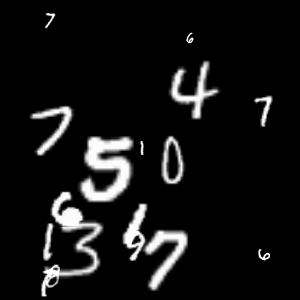 7
6
4
7
7
5 1 0
6
1 3 6 9 7
8
6